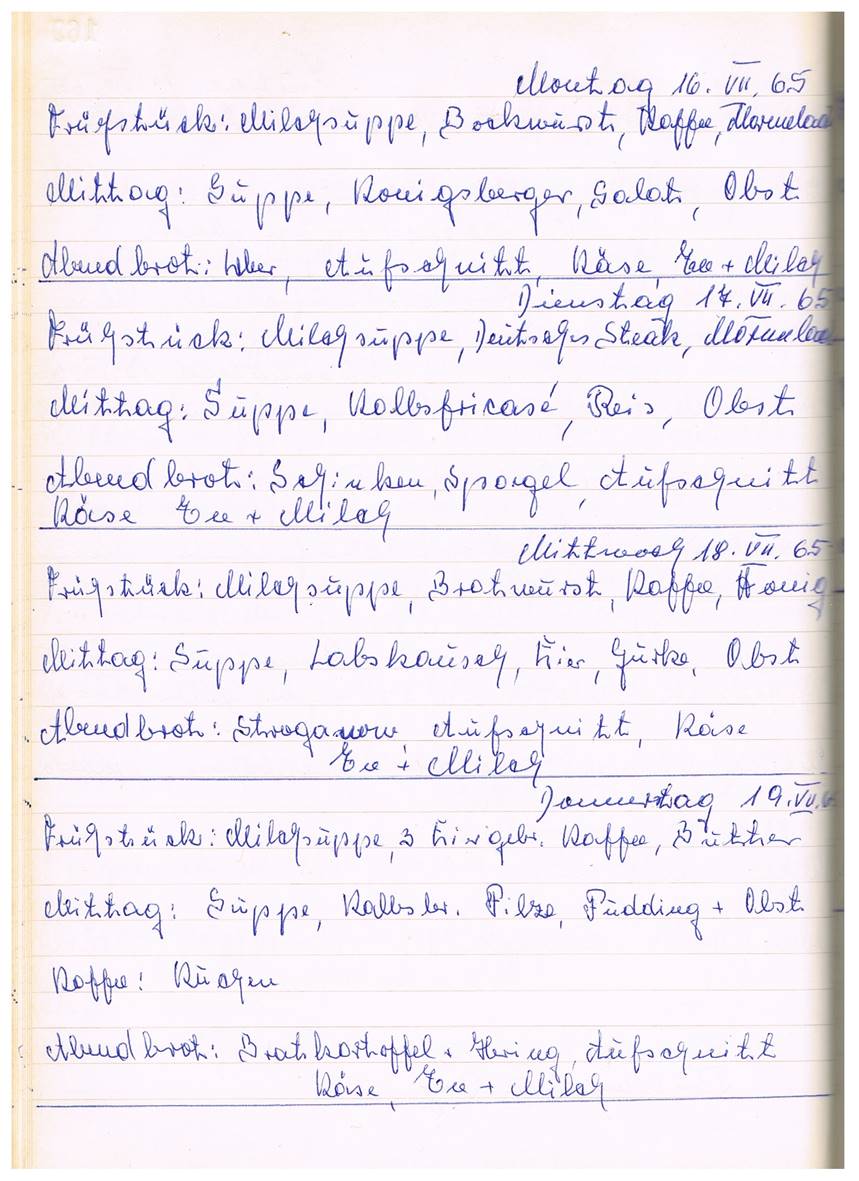 Montag 16. VII. 65
Frühstück: Milchsuppe, Bockwurst, Kaffee, Marmelad
Mittag: Suppe, Königsberger, Salat, Obst
Abendbrot: Leber, Aufschnitt, Käse, Tee + Milch
Dienstag 17. VII. 65
Frühstück: Milchsuppe, Deutsches Steak, Marmelad
Mittag: Suppe, Kalbsfricasé, Reis, Obst
Abendbrot: Schinken, Spargel, Aufschnitt
Käse Tee + Milch
Mittwoch 18. VII. 65
Frühstück: Milchsuppe, Bratwurst, Kaffee, Honig
Mittag: Suppe, Labskausch, Eier, Gurke, Obst
Abendbrot: Stroganow Aufschnitt, Käse
Tee + Milch
Donnerstag 19. VII. 6
Frühstück: Milchsuppe, 3 Eier gebr. Kaffee, Butter
Mittag: Suppe, Kalbsbr. Pilze, Pudding + Obst
Kaffee: Kuchen
Abendbrot: Bratkartoffel + Hering, Aufschnitt
Käse, Tee + Milch